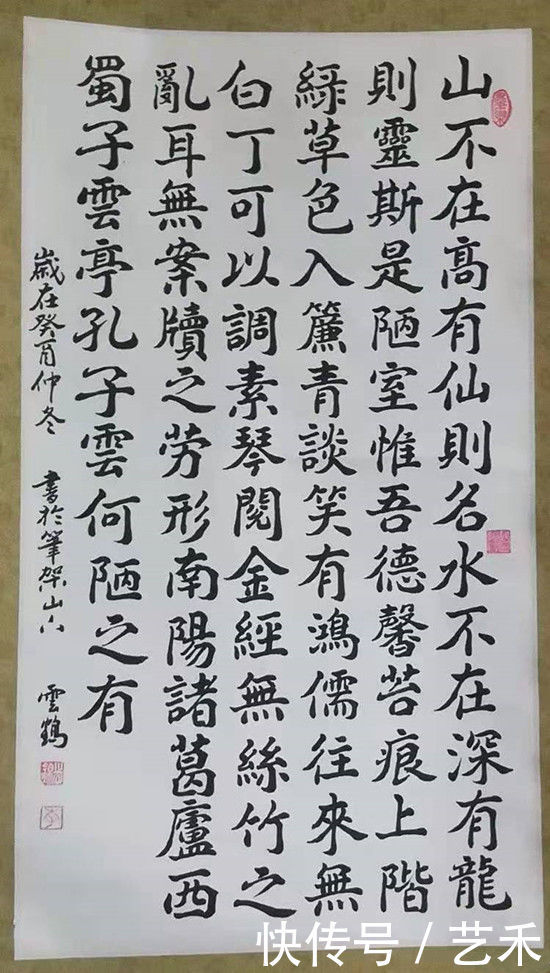 山不在高有仙則名水不在深有龍
則靈斯是陋室惟吾德馨苔痕上階
綠草色入簾青談笑有鴻儒往來無
白丁可以調素琴閱金經無絲竹之
亂耳無案牘之劳形南陽諸葛廬西
蜀子雲亭孔子雲何陋之有
歲在癸酉仲冬 書於筆架山下 雲鶴
快传号 / 艺禾